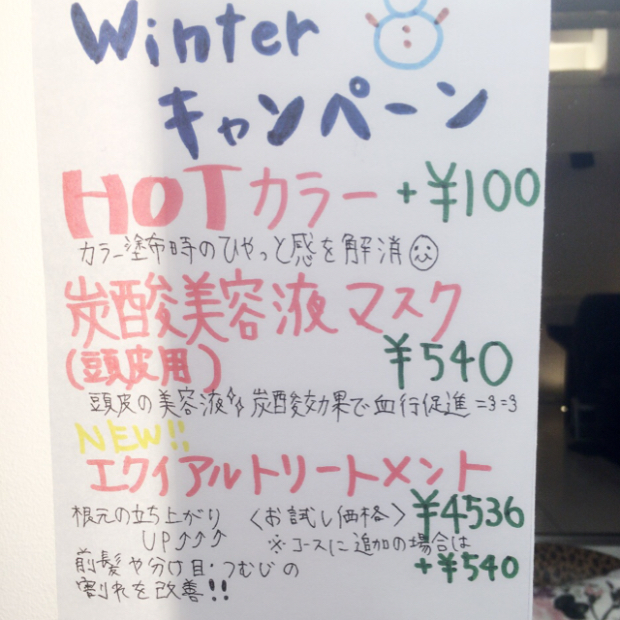 Winter
キャンペーン
HOTカラー +¥100
カラー塗布時のひやっと感を解消
炭酸美容液マスク
(頭皮用) ¥540
頭皮の美容液 炭酸効果で血行促進=3=3
NEW!!
エクイアルトリートメント
根元の立ち上がり 〈お試し価格〉 ¥4536
UP↑↑↑ ※コースに追加の場合は
前髪や分け目・つむじの +¥540
割れを改善!!